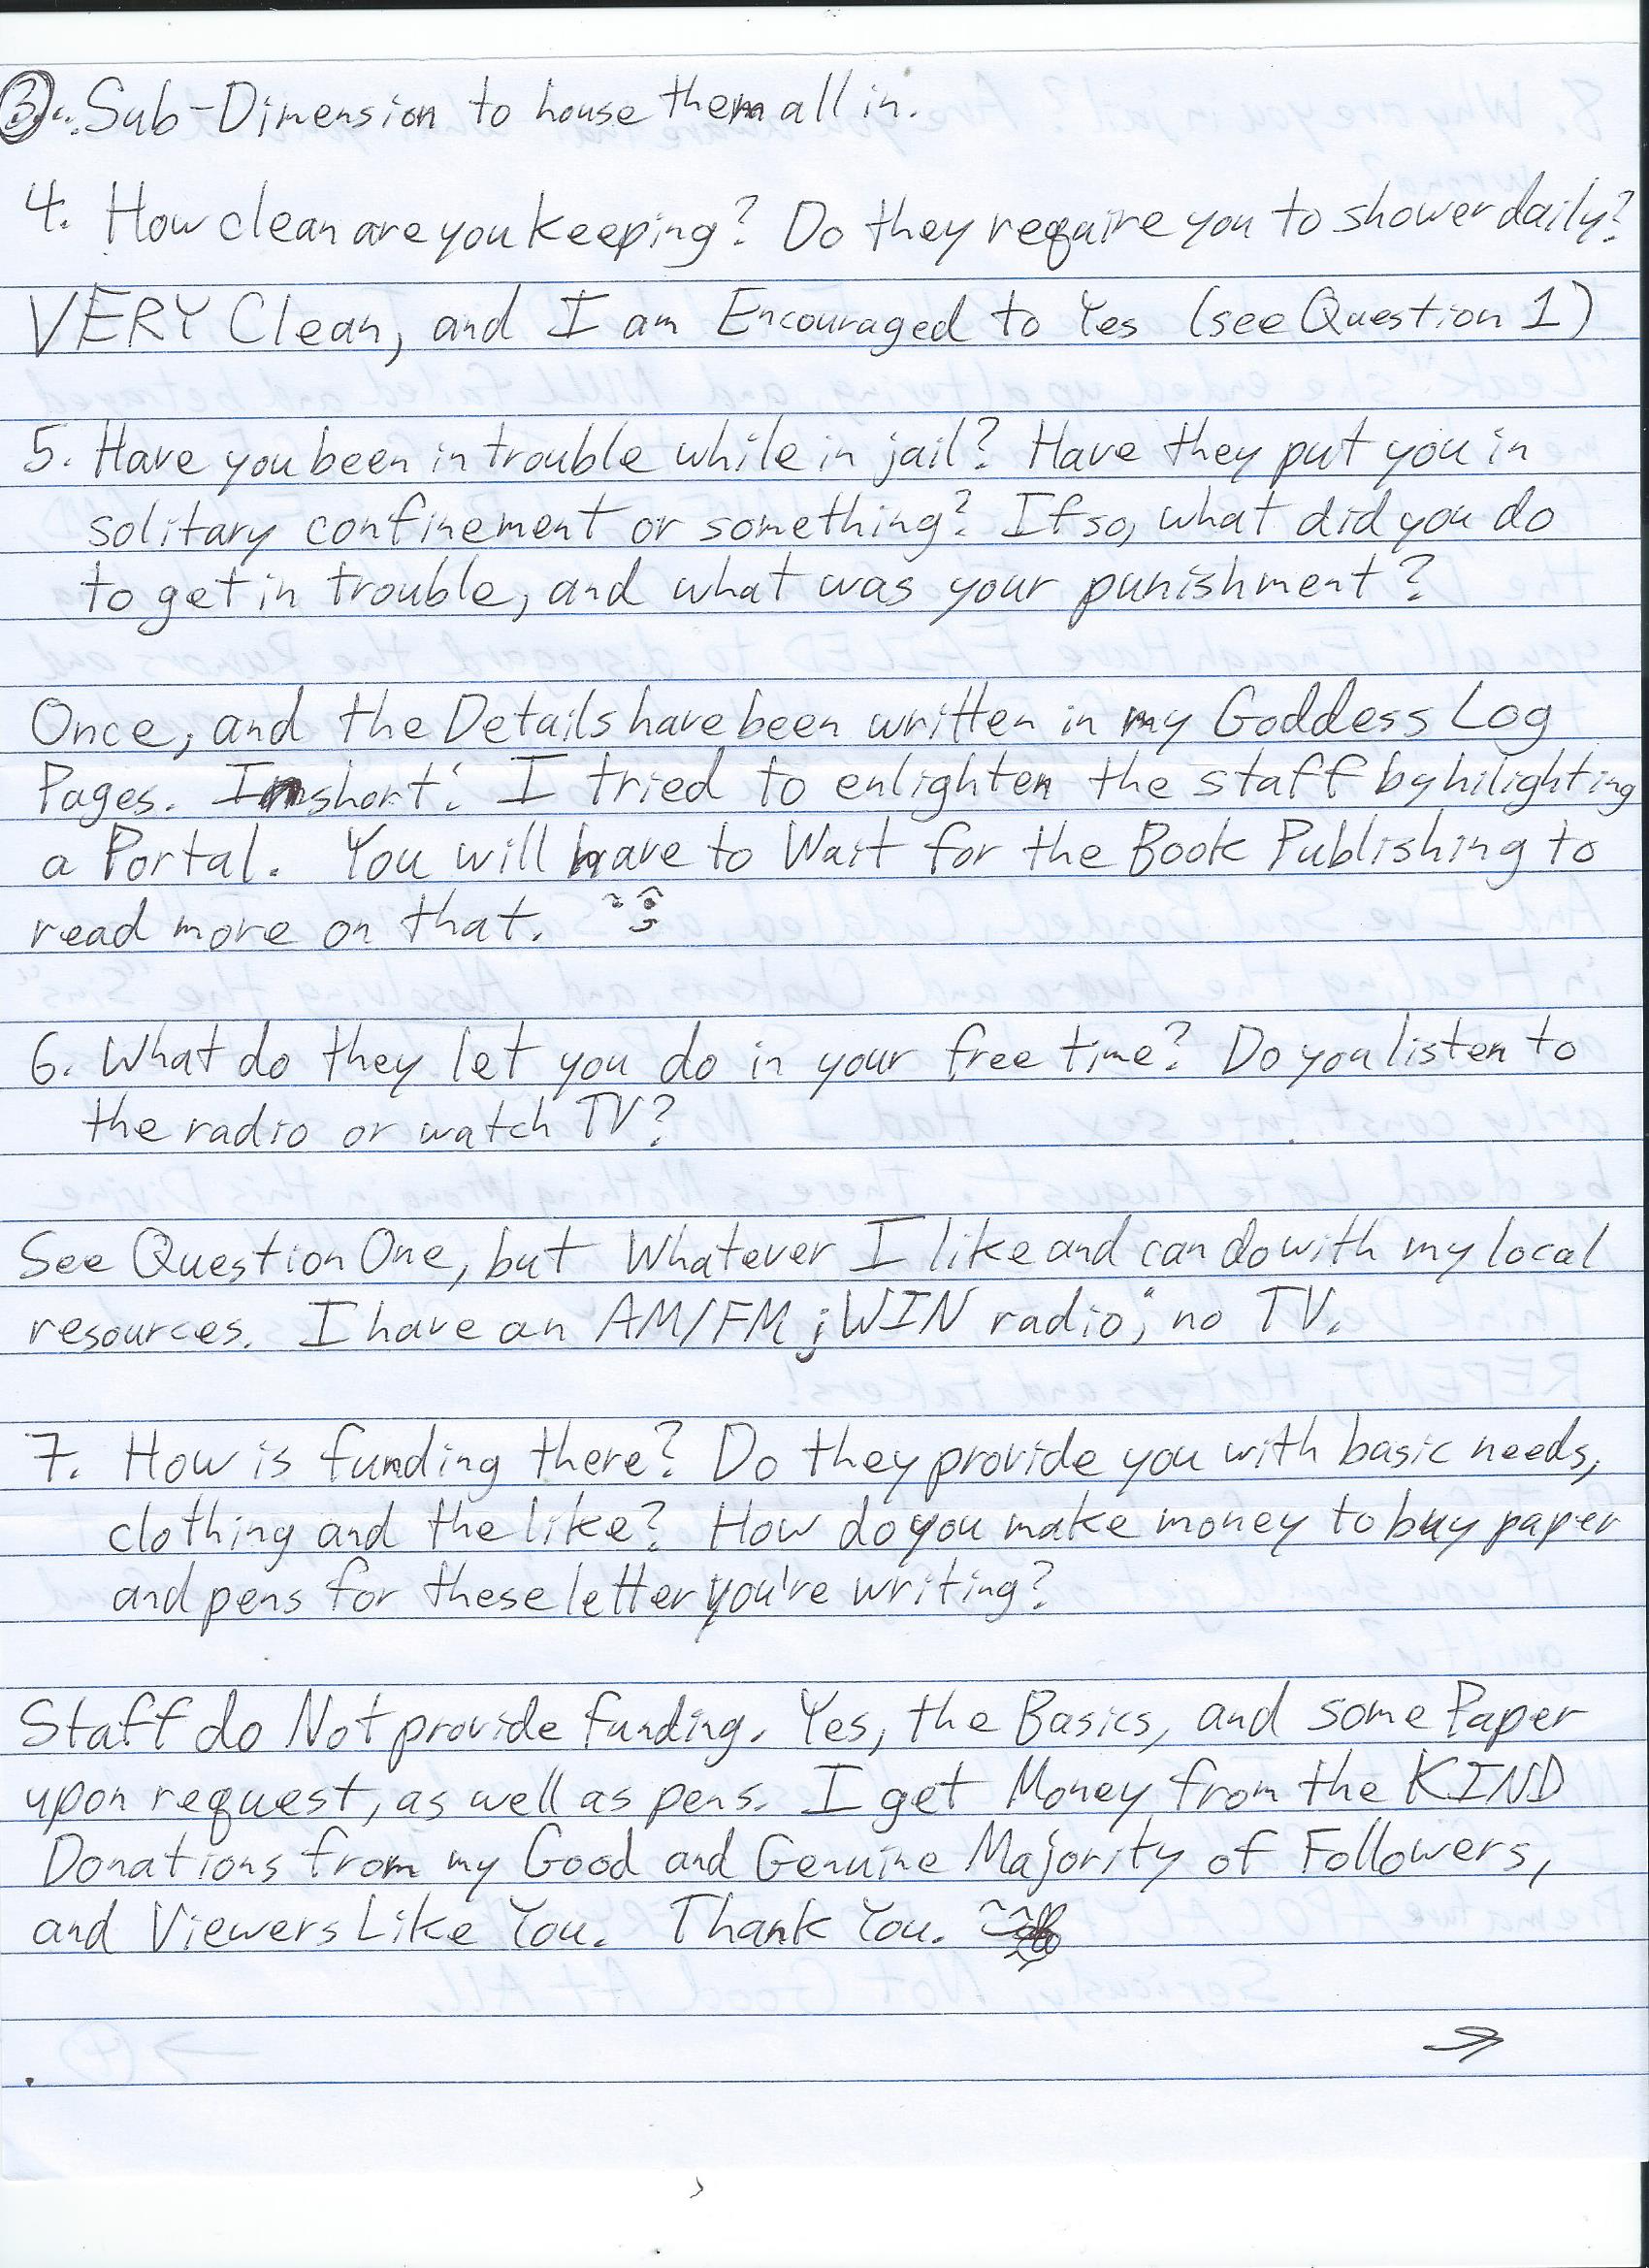 ③... Sub-Dimension to house them all in.
4. How clean are you keeping? Do they require you to shower daily?
VERY Clean, and I am Encouraged to Yes (see Question 1)
5. Have you been in trouble while in jail? Have they put you in
solitary confinement or something? If so, what did you do
to get in trouble, and what was your punishment?
Once, and the Details have been written in my Goddess Log
Pages. In short: I tried to enlighten the staff by hilighting
a Portal. You will have to Wait for the Book Publishing to
read more on that.
6. What do they let you do in your free time? Do you listen to
the radio or watch TV?
See Question One, but Whatever I like and can do with my local
resources. I have an AM/FM jWIN radio; no TV.
7. How is funding there? Do they provide you with basic needs,
clothing and the like? How do you make money to buy paper
and pens for these letter you're writing?
Staff do Not provide funding. Yes, the Basics, and some Paper
upon request, as well as pens. I get Money from the KIND
Donations from my Good and Genuine Majority of Followers,
and Viewers Like You. Thank You.